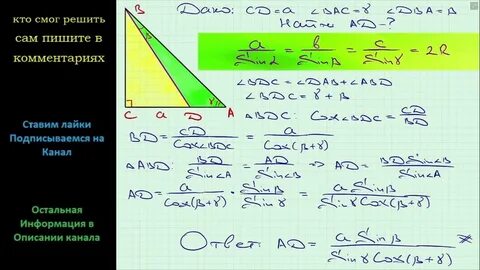 кто смог решить
сам пишите в
комментариях
Ставим лайки
Подписываемся на
Канал
Остальная
Информация в
Описании канала
B
C a D A
γ
Дано: CD=a ∠BAC=γ ∠DBA=β
Найти AD-?
a/Sinα = b/Sinβ = c/Sinγ = 2R
∠BDC=∠DAB+∠ABD
∠BDC=γ+β
△BDC: Cos∠BDC=CD/BD
BD=CD/Cos∠BDC=a/Cos(β+γ)
△ABD: BD/Sin∠A=AD/Sin∠B ⇒ AD=BD Sin∠B/Sin∠A
AD=a/Cos(β+γ)·Sinβ/Sinγ=a Sinβ/SinγCos(β+γ)
Ответ: AD=a Sinβ/SinγCos(β+γ)